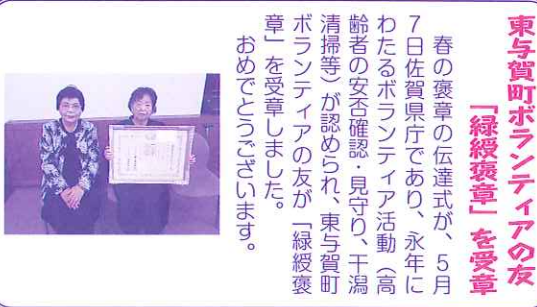 東与賀町ボランティアの友
「緑綬褒章」を受章
春の褒章の伝達式が、5月
7日佐賀県庁であり、永年に
わたるボランティア活動（高
齢者の安否確認・見守り、干潟
清掃等）が認められ、東与賀町
ボランティアの友が「緑綬褒
章」を受章しました。
おめでとうございます。